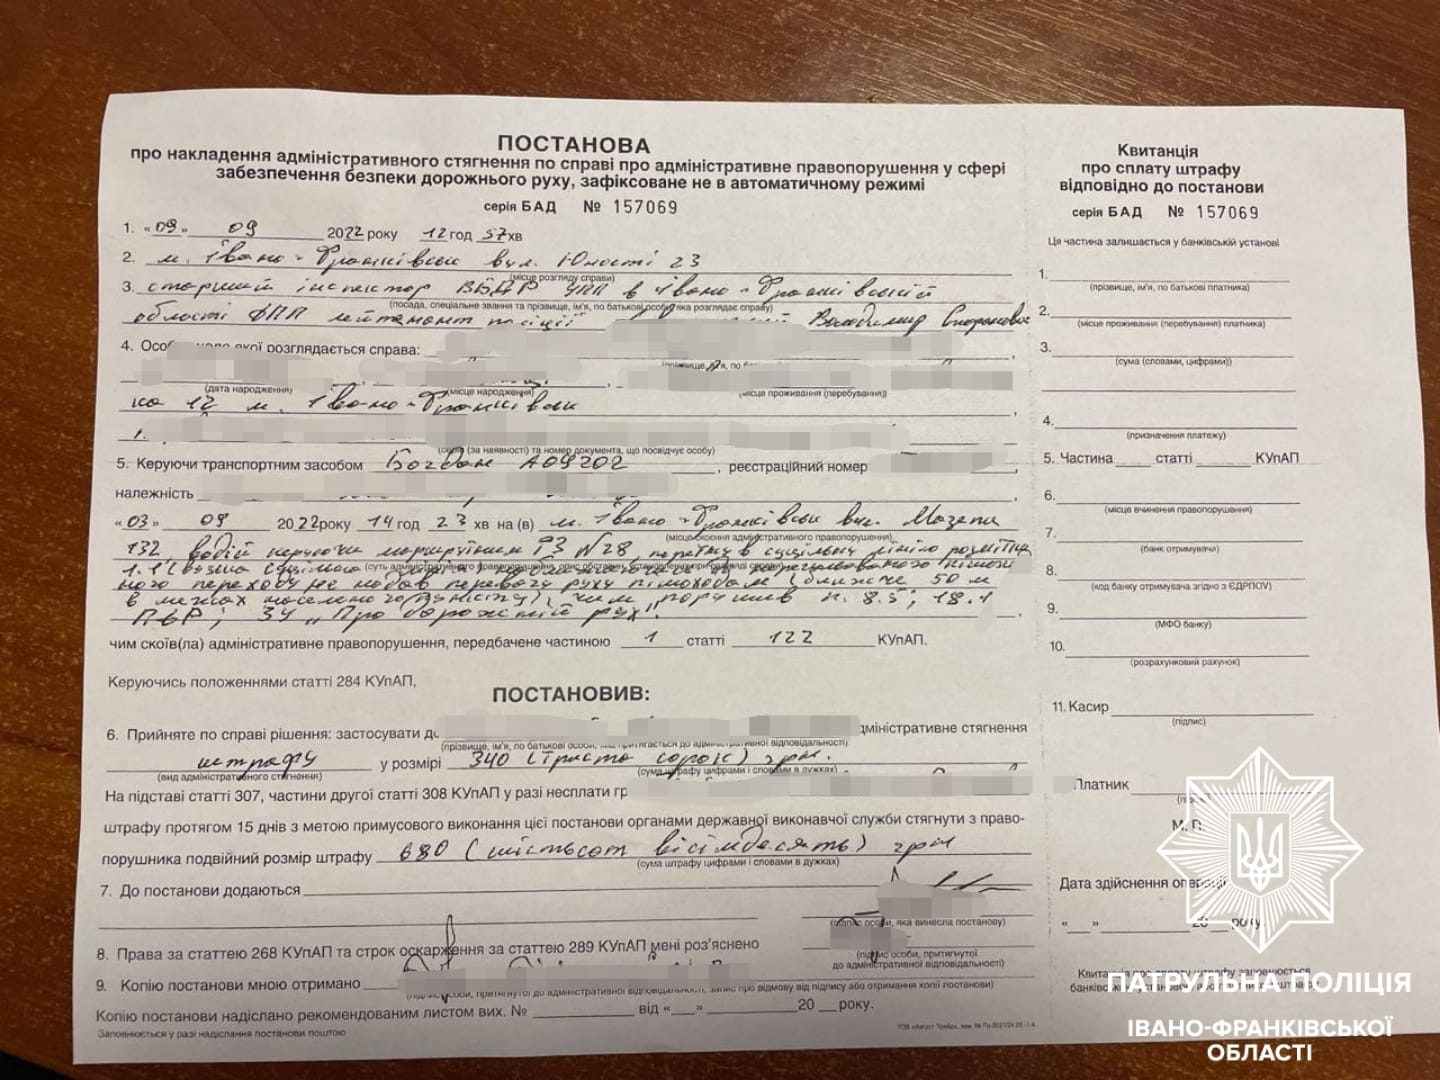 ПОСТАНОВА
про накладення адміністративного стягнення по справі про адміністративне правопорушення у сфері
забезпечення безпеки дорожнього руху, зафіксоване не в автоматичному режимі
серія БАД № 157069
1. «09» 09 2022 року 12 год 57 хв
2. м. Івано-Франківськ вул. Юності 23
(місце розгляду справи)
3. старший інспектор ВБДР УПП в Івано-Франківській
(посада, спеціальне звання та прізвище, ім'я, по батькові особи, яка розглядає справу)
області ДПП лейтенант поліції Володимир
4. розглядається справа:
(дата народження) (місце народження) (місце проживання (перебування))
12 м. Івано-Франківськ
(за наявності) та номер документа, що посвідчує особу)
5. Керуючи транспортним засобом Богдан А09202, реєстраційний номер
належність
«03» 09 2022 року 14 год 23 хв на (в) м. Івано-Франківськ вул. Мазепи
(місце скоєння адміністративного правопорушення)
132, водій керуючи маршрутним ТЗ №28, перетнув суцільну лінію розмітки
1.1 (вузька суцільна лінія) наближаючись до нерегульованого пішохід
ного переходу не надав перевагу руху пішоходам (ближче 50 м
в межах населеного пункту), чим порушив п. 8.5; 18.1
ПДР, ЗУ „Про дорожній рух".
чим скоїв(ла) адміністративне правопорушення, передбачене частиною 1 статті 122 КУпАП.
Керуючись положеннями статті 284 КУпАП,
ПОСТАНОВИВ:
6. Прийняте по справі рішення: застосувати до дміністративне стягнення
(прізвище, ім'я, по батькові особи, яка притягається до адміністративної відповідальності)
штрафу у розмірі 340 (триста сорок) грн.
(вид адміністративного стягнення) (сума штрафу цифрами і словами в дужках)
На підставі статті 307, частини другої статті 308 КУпАП у разі несплати гр
штрафу протягом 15 днів з метою примусового виконання цієї постанови органами державної виконавчої служби стягнути з право-
порушника подвійний розмір штрафу 680 (шістьсот вісімдесять) грн
(сума штрафу цифрами і словами в дужках)
7. До постанови додаються
(підпис особи, яка винесла постанову)
8. Права за статтею 268 КУпАП та строк оскарження за статтею 289 КУпАП мені роз'яснено
(підпис особи, притягнутої
до адміністративної відповідальності)
9. Копію постанови мною отримано
(підпис особи, притягнутої до адміністративної відповідальності, запис про відмову від підпису або отримання копії постанови)
Копію постанови надіслано рекомендованим листом вих. № від « » 20 року.
Заповнюється у разі надіслання постанови поштою
Квитанція
про сплату штрафу
відповідно до постанови
серія БАД № 157069
Ця частина залишається у банківській установі
1.
(прізвище, ім'я, по батькові платника)
2.
(місце проживання (перебування) платника)
3.
(сума (словами, цифрами))
4.
(призначення платежу)
5. Частина статті КУпАП
6.
(місце вчинення правопорушення)
7.
(банк отримувача)
8.
(код банку отримувача згідно з ЄДРПОУ)
9.
(МФО банку)
10.
(розрахунковий рахунок)
11. Касир
(підпис)
Платник
М. П.
Дата здійснення операції
« » 20 року
Квитанція про сплату штрафу заповнюється
ПАТРУЛЬНА ПОЛІЦІЯ
ІВАНО-ФРАНКІВСЬКОЇ
ОБЛАСТІ